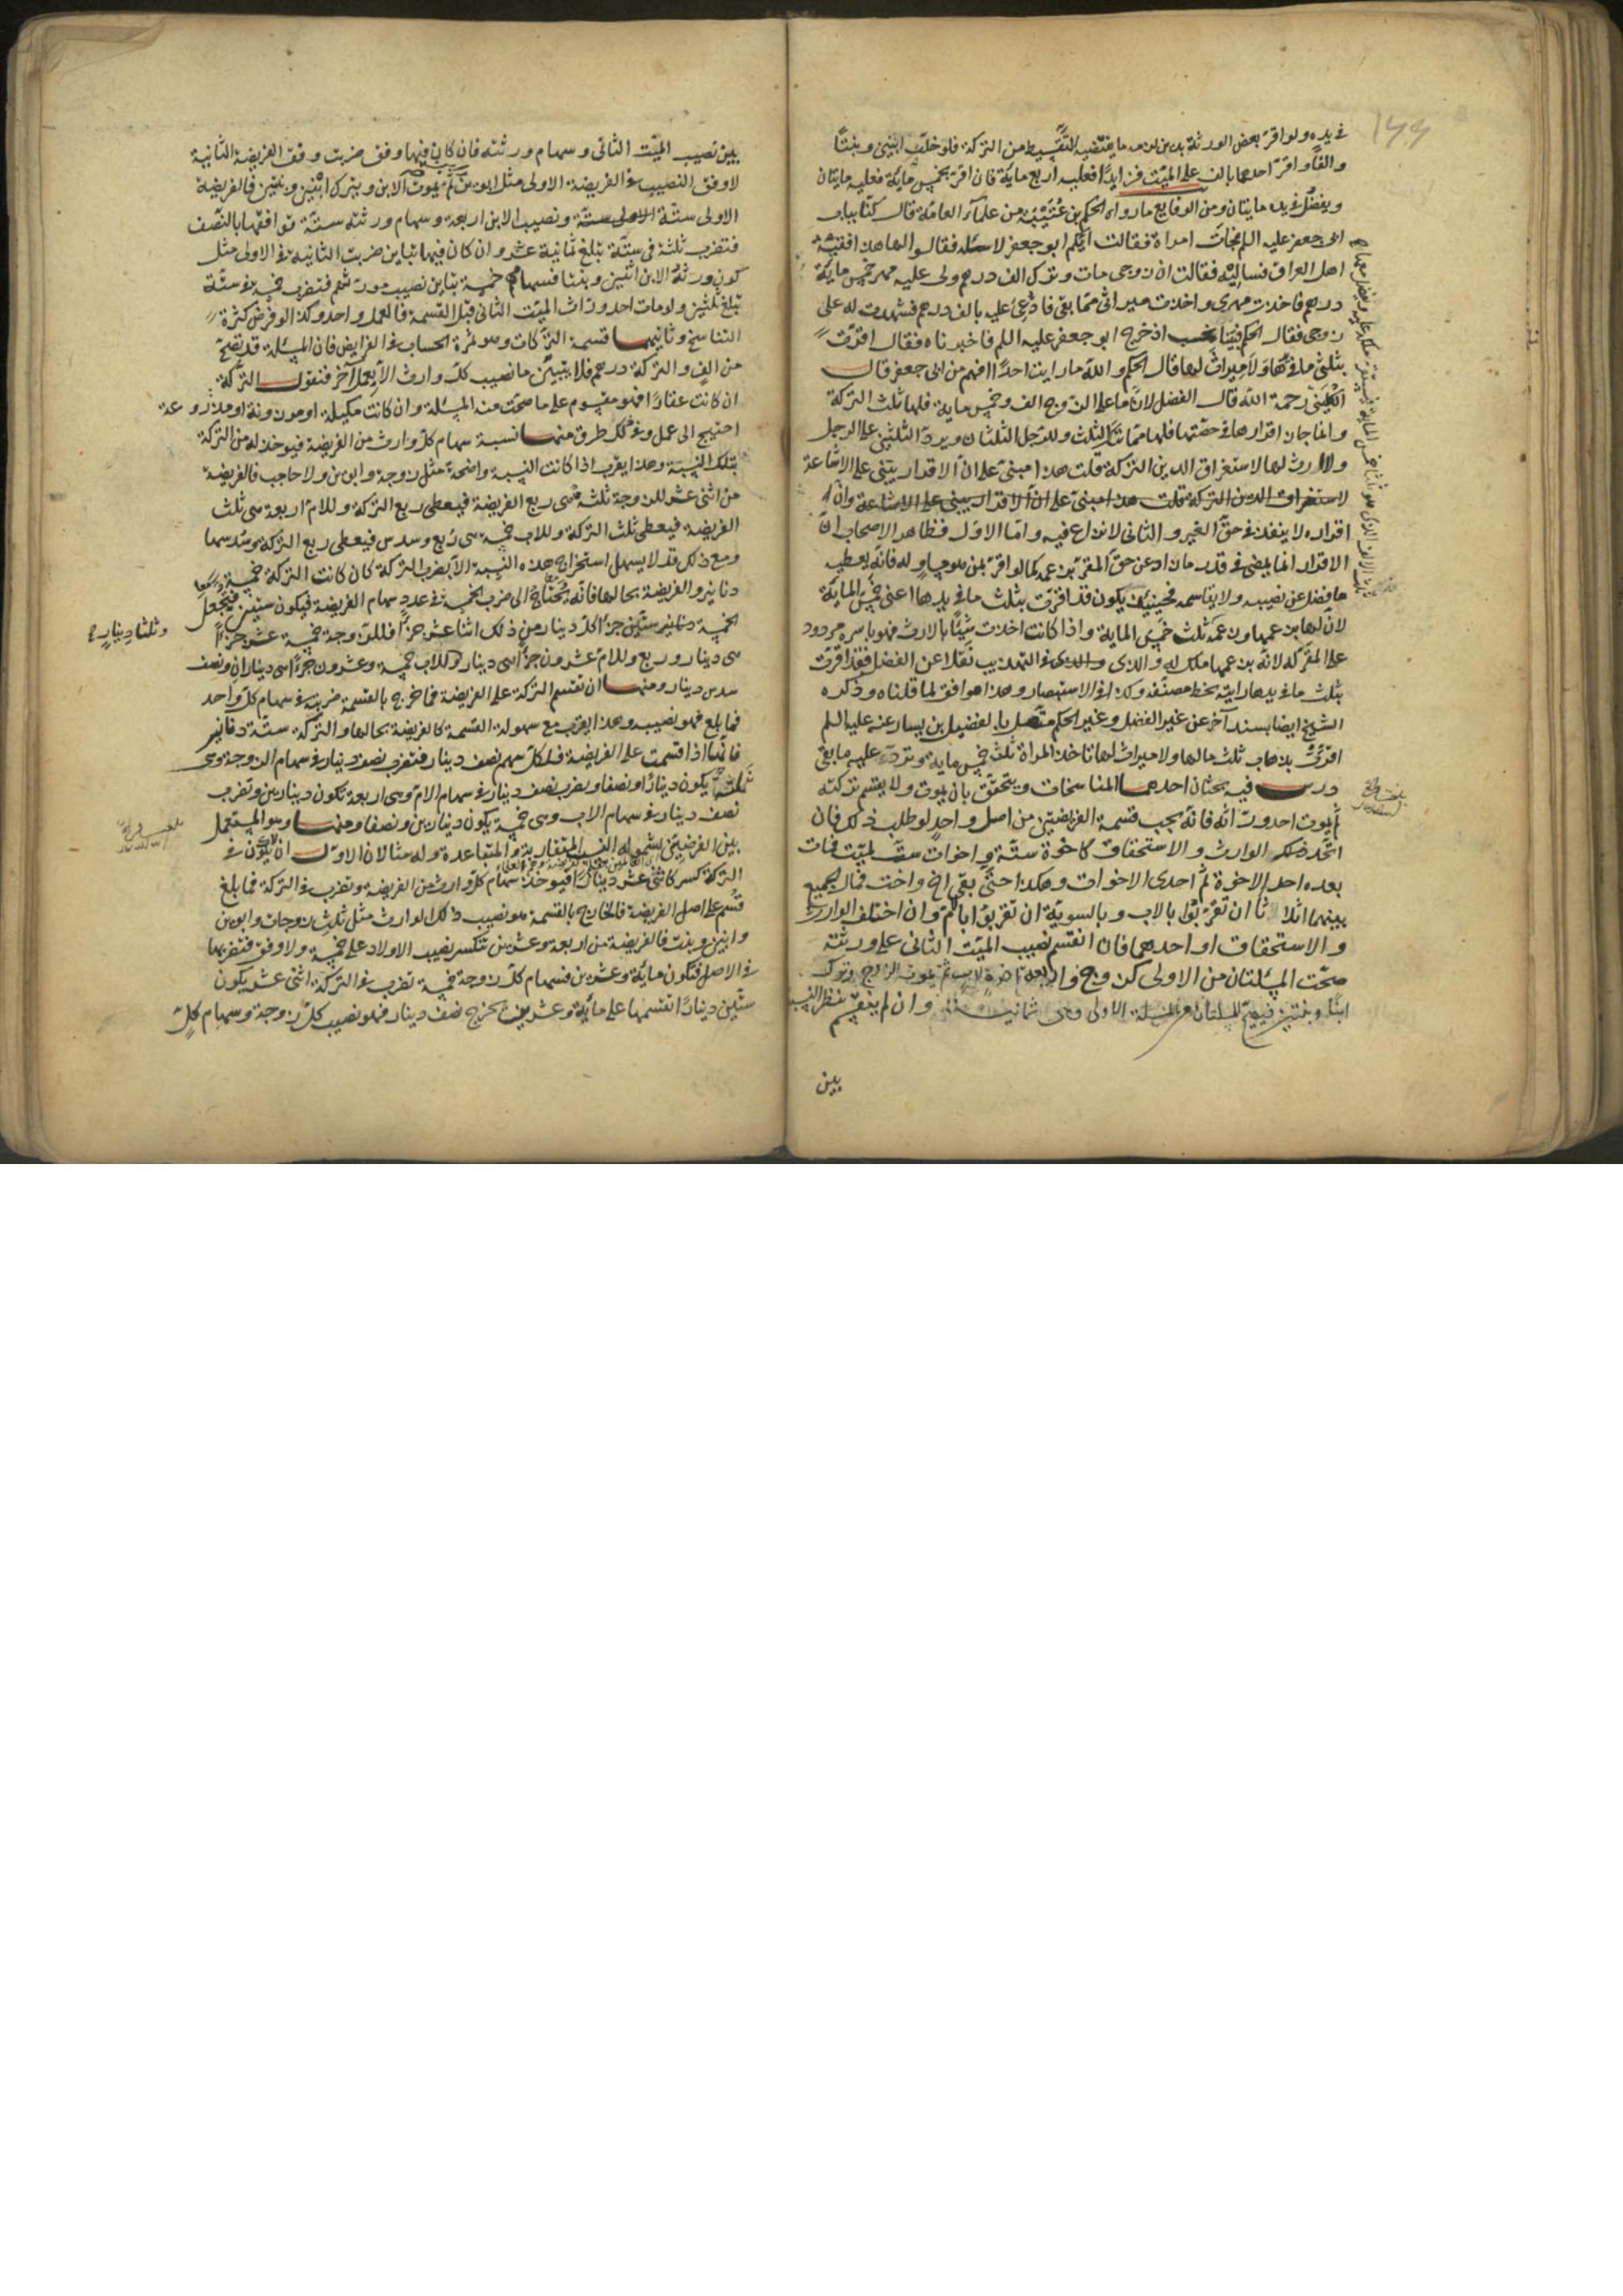 في يده ولو اقر بعض الورثة بدين لزمه ما يقتضيه التقسيط من التركة فلو خلف ابنين وبنتا
والفا واقر احدهما بالف على الميت فعليه اربع ماية فان اقر بخمس ماية فعليه مايتان
ويفضل في يده مايتان ومن الوقايع ما رواه الحكم بن عتيبة من علمآء العامة قال كنا بباب
ابى جعفر عليه السلم فجات امراة فقالت ايكم ابو جعفر لاسئله فقالوا لها هذا فقيه
اهل العراق فسليه فقالت ان زوجى مات وترك الف درهم ولى عليه مهر خمس ماية
درهم فاخذت مهرى واخذت ميراثى مما بقى فادعى عليه بالف درهم فشهدت له على
زوجى فقال الحكم فبينا نحسب اذ خرج ابو جعفر عليه السلم فاخبرناه فقال اقرت
بثلثى ما في يدها ولا ميراث لها قال الحكم والله ما رايت احدا افهم من ابى جعفر قال
الكلينى رحمة الله قال الفضل لان ما على الزوج الف وخمس ماية فلها ثلث التركة
وانما جاز اقرارها في حصتها فلها مما ترك الثلث وللرجل الثلثان ويرد الثلثين على الرجل
ولا ارث لها لاستغراق الدين التركة قلت هذا مبنى على ان الاقرار يبنى على الاشاعة
لاستغراق الدين التركة قلت هذا مبنى على ان الاقرار يبنى على الاشاعة وان
اقراره لا ينفذ في حق الغير والثانى لا نزاع فيه واما الاول فظاهر الاصحاب ان
الاقرار انما يمضى في قدر ما زاد عن حق المقر بزعمه كما لو اقر بمن هو مساو له فانه يعطيه
ما فضل عن نصيبه ولا يقاسمه فحينئذ يكون قد اقرت بثلث ما في يدها اعنى خمس الماية
لان لها بزعمها وزعمه ثلث خمس الماية واذا كانت اخذت شيئا بالارث فهو باسره مردود
على المقر له لانه بزعمها ملك له والذى في التهذيب نقلا عن الفضل فقد اقرت
بثلث ما في يدها رايته بخط مصنفه وكذا في الاستبصار وهذا موافق لما قلناه وذكره
الشيخ ايضا بسند آخر عن غير الفضل وغير الحكم متصل بالفضيل بن يسار عنه عليه السلم
اقرت بذهاب ثلث مالها ولا ميراث لها تاخذ المراة ثلث خمس ماية وترد عليه ما بقى
درس فيه بحثان احدهما المناسخات ويتحقق بان يموت ولا يقسم تركته
ثم يموت احد وراثه فانه يجب قسمة الفريضتين من اصل واحد لو طلب ذلك فان
اتحد الوارث والاستحقاق كاخوة ستة واخوات ست لميت فمات
بعده احد الاخوة ثم احدى الاخوات وهكذا حتى بقى اخ واخت فمال الجميع
بينهما اثلاثا ان تقربوا بالاب وبالسوية ان تقربوا بالام وان اختلف الوارث
والاستحقاق او احدهما فان انقسم نصيب الميت الثانى على ورثته
صحت المسئلتان من الاولى كزوج واربعة اخوة لاب ثم يموت الزوج وترك
ابنا وبنتين فيصح المسئلتان من المسئلة الاولى وهى ثمانية وان لم ينقسم نظر النسبة
بين
بين نصيب الميت الثانى وسهام ورثته فان كان فيها وفق ضربت وفق الفريضة الثانية
لا وفق النصيب في الفريضة الاولى مثل ابوين وابن ثم يموت الابن ويترك ابنين وبنتين فالفريضة
الاولى ستة ونصيب الابن اربعة وسهام ورثته ستة توافقها بالنصف
فتضرب ثلثة في ستة تبلغ ثمانية عشر وان كان فيهما تباين ضربت الثانية في الاولى مثل
كون ورثة الابن ابنين وبنتا فسهامهم خمسة تباين نصيب مورثهم فتضرب خمسة في ستة
تبلغ ثلثين ولو مات احد وراث الميت الثانى قبل القسمة فالعمل واحد وكذا لو فرض كثرة
التناسخ وثانيهما قسمة التركات وهو ثمرة الحساب في الفرايض فان المسئلة قد تصح
من الف والتركة درهم فلا يتبين ما نصيب كل وارث الا بعمل آخر فنقول التركة
ان كانت عقارا فهو مقسوم على ما صحت منه المسئلة وان كانت مكيلة او موزونة او مذروعة
احتيج الى عمل وفي ذلك طرق منها نسبة سهام كل وارث من الفريضة فيوخذ له من التركة
بتلك النسبة وهذا يقرب اذا كانت النسبة واضحة مثل زوجة وابوين ولا حاجب فالفريضة
من اثنى عشر للزوجة ثلثة هى ربع الفريضة فيعطى ربع التركة وللام اربعة هى ثلث
الفريضة فيعطى ثلث التركة وللاب خمسة هى ربع وسدس فيعطى ربع التركة وسدسها
ومع ذلك قد لا يسهل استخراج هذه النسبة الا بضرب التركة كان كانت التركة خمسة
دنانير والفريضة بحالها فانه تحتاج الى ضرب الخمسة في عدد سهام الفريضة فيكون ستين فيجعل
الخمسة دنانير ستين جزءا كل دينار من ذلك اثنا عشر جزءا فللزوجة خمسة عشر جزءا
هى دينار وربع وللام عشرون جزءا هى دينار وللاب خمسة وعشرون جزءا هى ديناران ونصف
وثلثا دينار
سدس دينار ومنها ان تقسم التركة على الفريضة فما خرج بالقسمة ضربته في سهام كل واحد
فما بلغ فهو نصيبه وهذا يقرب مع سهولة القسمة كالفريضة بحالها والتركة ستة دنانير
فانها اذا قسمت على الفريضة فلكل سهم نصف دينار فتضرب نصف دينار في سهام الزوجة وهى
ثلثة يكون دينارا ونصفا ويضرب نصف دينار في سهام الام وهى اربعة تكون دينارين وتضرب
نصف دينار في سهام الاب وهى خمسة يكون دينارين ونصفا ومنها وهو المستعمل
بين الفرضيين لشموله النسب المتقاربة والمتباعدة وله مثالان الاول ان يكون في
التركة كسر كاثنى عشر دينارا فيوخذ سهام كل وارث من الفريضة وتضرب في التركة فما بلغ
قسم على اصل الفريضة فالخارج بالقسمة هو نصيب ذلك الوارث مثل ثلث زوجات وابوين
وابنين وبنت فالفريضة من اربعة وعشرين تنكسر نصيب الاولاد على خمسة ولا وفق فتضربها
في الاصل فتكون مائة وعشرين فسهام كل زوجة خمسة تضرب في التركة اثنى عشر يكون
ستين دينارا تقسمها على ماية وعشرين يخرج نصف دينار فهو نصيب كل زوجة وسهام كل